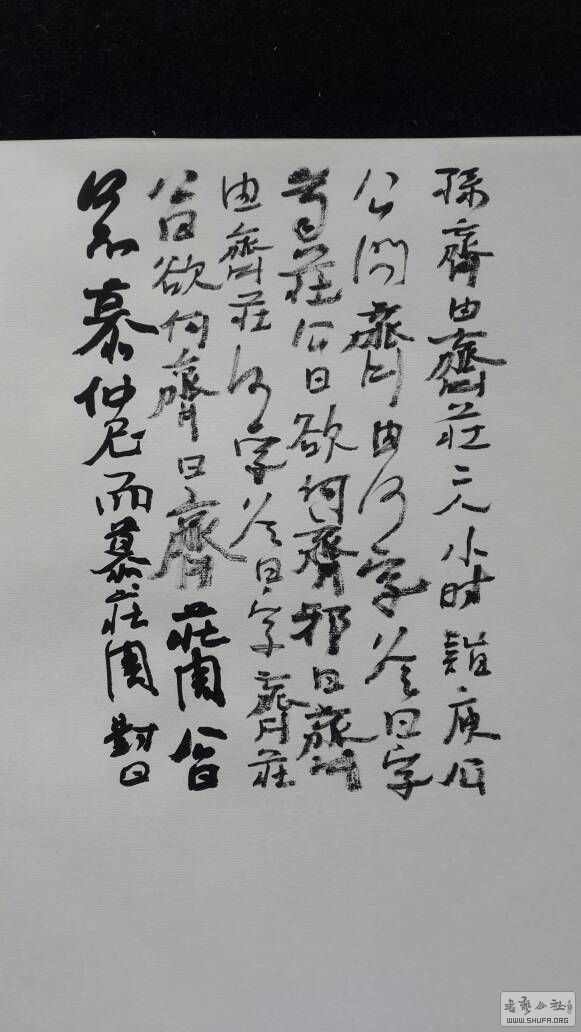 孫齊由齊莊二人小时詣庾公
公問齊由何字答曰字
莊公曰欲何齊邪曰齊
由齊莊何字答曰字齊莊
公曰欲何齊曰齊莊周公曰
何不慕仲尼而慕莊周對曰
书艺公社
WWW.SHUFA.ORG